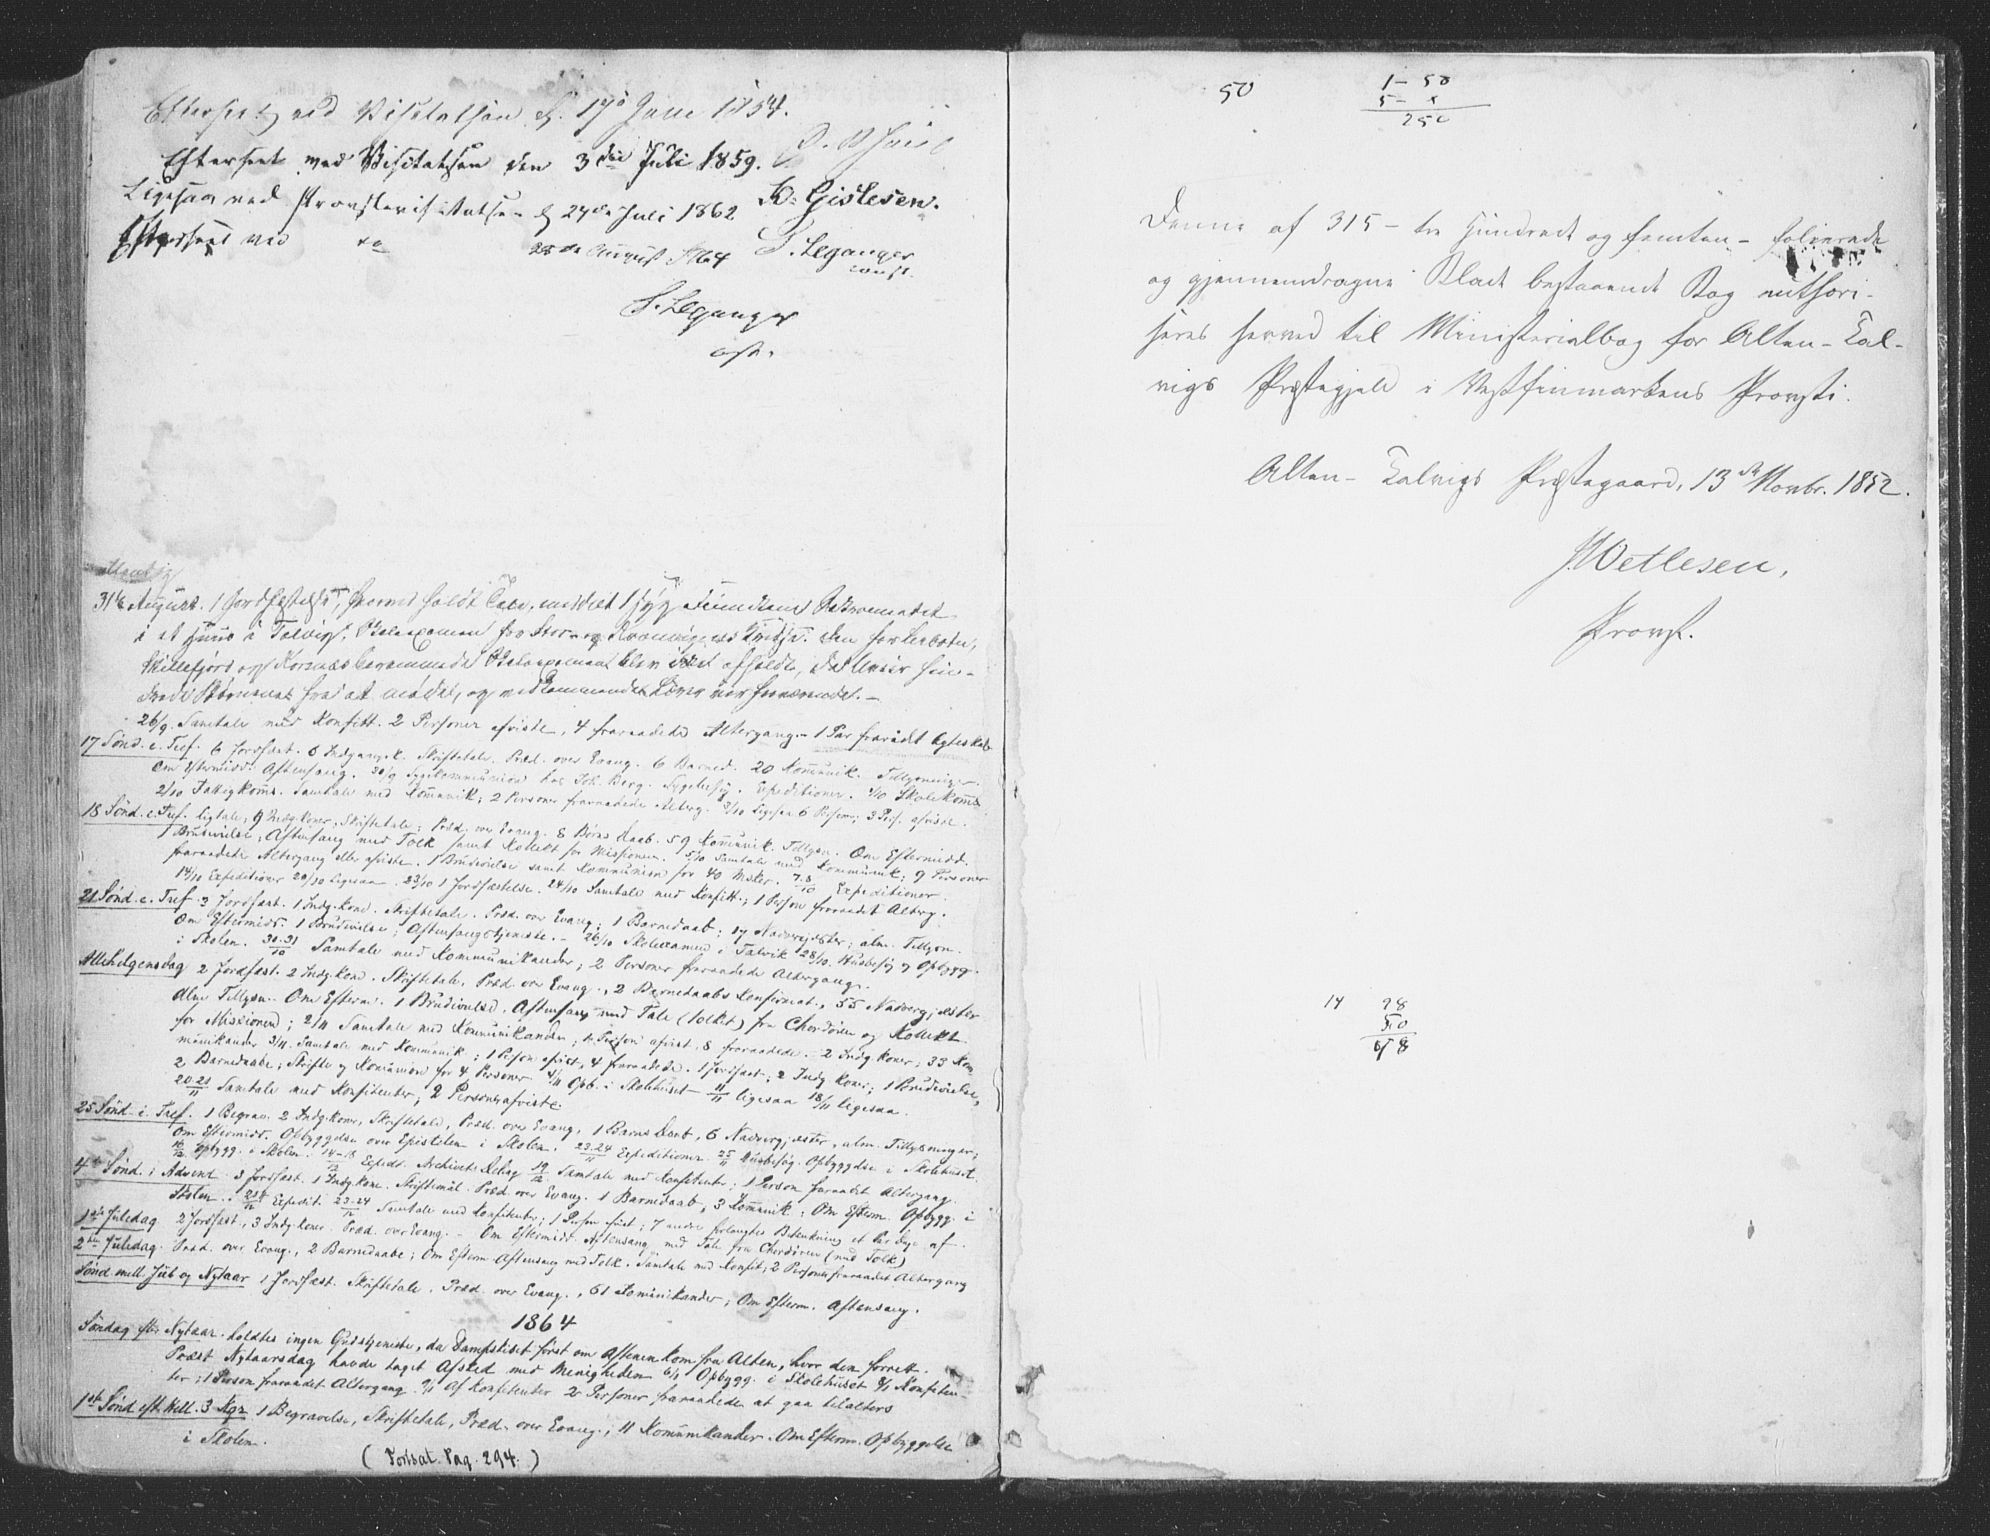 Efterseet ved Visitatsen d. 17de Juni 1854.
Efterseet ved Visitatsen den 3die Juli 1859.
K: Gislesen.
Ligesaa ved Provstevisitatsen d 24de Juli 1862
S. Leganger
const.
Efterseet ved do 28de August 1864
S. Leganger
cst.
31te August. 1 Jordfæstelse, hvorved holdt Tale, meddelt 1 syg Sacramentet
i et Huus i Talvig,
Skillefjord og Korsnæs berammede Skoleexamen blev ikke afholdt, da Veiret hin-
drede Børnene fra at møde,
26/9. Samtale med Konfitt. 2 Personer afviste, 4 fraraadede Altergang. - 1 Par fraraadt Ægteskab
17 Sønd. e. Tref. 6 Jordfæst. 6 Indgangsk. Skriftetale. Præd. over Evang. 6 Barned. 20 Kommunik. Tillysninger.
Om Eftermidd. Aftensang. 20/9 Sygekommunion hos Joh. Berg. Sygebesøg. Expeditioner. 1/10 Skolekoms.
2/10 Fattigkoms. Samtale med Kommunik; 2 Personer fraraadede Alterg. 3/10 Ligesaa 6 Person; 3 Pers. afviste.
18 Sønd. e. Tref. Ligtale, 9 Indg.koner, Skriftetale; Præd. over Evang. 8 Børns Daab. 59 Kommunik. Tillysn. Om Eftermidd.
1 Brudevielse, Aftensang med Tolk samt Kollekt for Missionen. 5/10 Samtale med Kommunik; 9 Personer
fraraadede Altergang eller afviste. 1 Brudevielse samt Kommunion for 40 Msker. 7.8/10 Expeditioner.
14/10 Expeditioner 20/10 ligesaa. 23/10 1 Jordfæstelse. 24/10 Samtale med Konfitt.; 1 Person fraraadet Alterg.
21 Sønd. e. Tref. 3 Jordfæst. 1 Indg.kone. Skriftetale. Præd. over Evang; 1 Barnedaab; 17 Nadvergjæster; alm. Tillysn.
Om Eftermidd. 1 Brudevielse; Aftensangstjeneste. - 26/10 Skoleexamen i Talvik 28/10. Husbesøg og Opbygg.
i Skolen. 30.31/10 Samtale med Kommunikander; 2 Personer fraraadede Altergang.
Allehelgensdag 2 Jordfæst. 2 Indg.kone. Skriftetale, Præd. over Evang., 2 Barnedaabs Konfirmat., 55 Nadvergjæster
Alm Tillysn. Om Efterm. 1 Brudevielse. Aftensang med Tale (tolket) fra Chordøren og Kollekt
for Missionen; 2/11 Samtale med Kommunikander; 1 Person afvist, 8 fraraadede. 2 Indg.koner; 33 Kom-
munikander 3/11. Samtale med Kommunik; 1 Person afvist, 4 fraraadede. 1 Jordfæst; 2 Indg koner; 1 Brudevielse,
2 Barnedaabe; Skrifte og Kommunion for 4 Personer 4/11 Opb. i Skolehuset 11/11 ligesaa 18/11 ligesaa.
20.21/11 Samtale med Konfitenter; 2 Personer afviste.
25 Sønd. e. Tref. 1 Begrav. 2 Indg.koner, Skriftetale, Præd. over Evang, 1 Barns Daab, 6 Nadvergjæster, alm. Tillysninger;
Om Eftermidd. Opbyggelse over Epistelen i Skolen. 23.24/11 Expeditioner 25/11 Husbesøg. Opbyggelse i Skolehuset.
Opbygg. i Skolen. 14-18/12 Expedit. Archivets Delng 19/12 Samtale med Konfitenter; 1 Person fraraadet Altergang.
4de Sønd. i Advent 3 Jordfæst. 1 Indg.kone. Skriftemål. Præd. over Evang. 1 Barnedaab, 3 Kommunik: Om Efterm. Opbygg. i
Skolen. Expedit. 23-24/12 Samtale med Konfitenter; 1 Person afvist; 7 andre forlangtes Betenkning et Par Dage af.
1ste Juledag 2 Jordfæst., 3 Indg.koner. Præd. over Evang. - Om Eftermidd. Aftensang med Tale fra Chordøren (med Tolk)
2den Juledag. Præd. over Evang., 2 Barnedaabe; Om Efterm. Aftensang med Tolk. Samtale med Konfit; 2 Personer fraraadet Altergang
Sønd. mell. Jul og Nytaar 1 Jordfæst. Skriftetale. Præd. over Evang., 61 Kommunikander; Om Efterm. Aftensang.
1864
Søndag eft. Nytaar. holdtes ingen Gudstjeneste, da Dampskibet først om Aftenen kom fra Alten, hvor den forrett.
Præst Nytaarsdag havde taget Afsked med Menigheden 6/1 Opbygg. i Skolehuset 8/1 Konfiten-
ter; 1 Person fraraadet Altergang. 9/1 Af Konfitenter 2 Personer fraraadede at gaa tilalters
1ste Sønd. eft. Hell. 3 Kgr 1 Begravelse, Skriftetale, Præd. over Evang.; 11 Kommunikander. Om Efterm. Opbyggelse
i Skolen.
(Fortsat. Pag. 294.)
50
1 - 50
5 - x
250
Denne af 315 - tre Hundrede og femten - folierede
og gjennemdragne Blade bestaaende Bog authori-
seres herved til Ministerialbog for Alten-Tal-
vigs Præstegjeld i Vestfinmarkens Provsti.
Alten-Talvigs Præstegaard, 13de Novbr. 1852.
J. Wetlesen,
Provst.
14 98
50
68